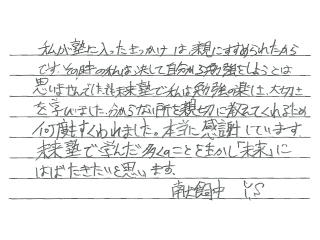 私が塾に入ったきっかけは、親にすすめられたから
です。その時の私は決して自分から勉強をしようとは
思いませんでした。未来塾で私は勉強の楽しさ、大切さ
を学びました。分からない所を親切に教えてくれるため
何度もすくわれました。本当に感謝しています。
未来塾で学んだ多くのことを生かし「未来」に
はばたきたいと思います。
南犬飼中 Y.S